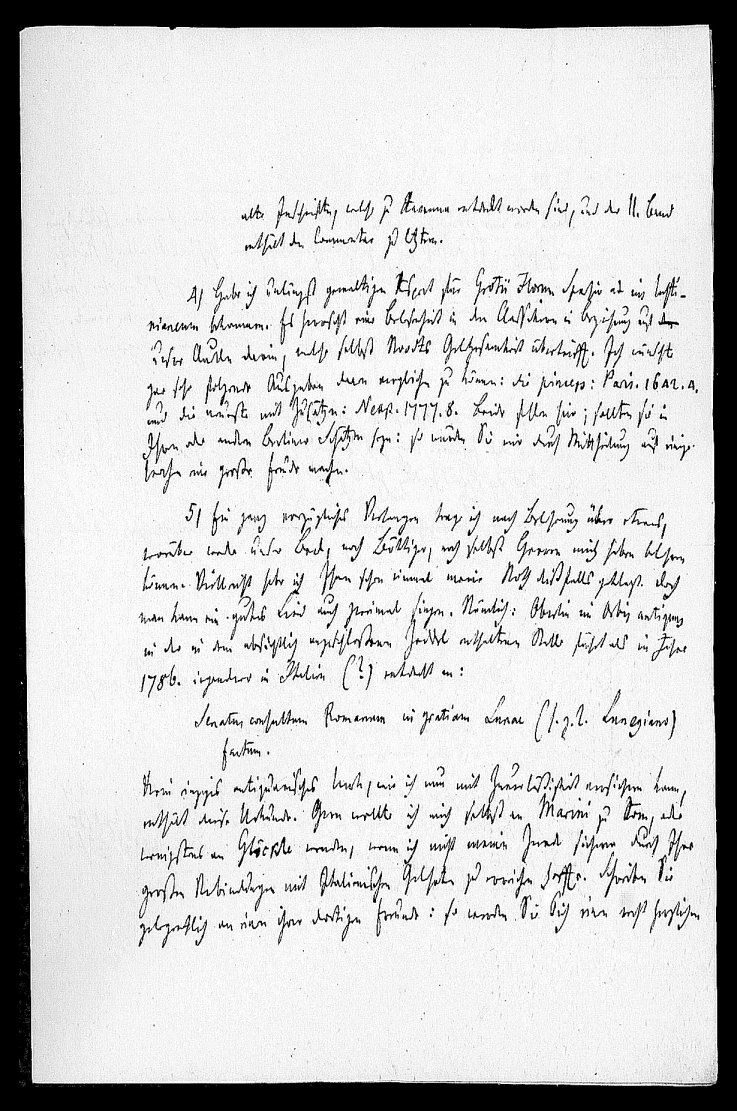 alte Inschriften, welche zu Ravenna entdeckt worden sind, und der II. Band
enthält den Commentar zu letztern.
4) Habe ich unlängst gewaltigen Respect für Grotii Florum Sparsio ad ius Justi-
nianeum bekommen. Es herrscht eine Belesenheit in den Classikern in Beziehung auf
unsere Quellen darin, welche selbst Noodts Gelehrsamkeit übertrifft. Ich möchte
gar sehr folgende Ausgaben davon verglichen zu können: die princeps: Paris. 1642. 4.
und die neueste mit Zusätzen: Neap. 1777. 8. Beide fehlen hier; sollten sie in
Ihren oder andern Berliner Schätzen seyn: so würden Sie mir durch Mittheilung auf einige
Wochen eine große Freude machen.
5) Ein ganz vorzügliches Verlangen trage ich nach Belehrung über etwas,
worüber weder unser Beck, noch Böttiger, noch selbst Haenel mich haben belehren
können. Vielleicht habe ich Ihnen schon einmal meine Noth dießfalls geklagt. Doch
man kann ein gutes Lied auch zweimal singen. Nämlich: Oberlin in Orbis antiquus
in der in dem absichtlich angeschlossenen Zeddel enthaltenen Stelle führt als im Jahre
1786. irgendwo in Italien (?) entdeckt an:
Senatus consultum Romanum in gratiam Lunae (s. g. l. Lunegiano)
factum.
Kein einziges antiquarisches Werk, wie ich nun mit Zuverläßigkeit versichern kann,
enthält diese Urkunde. Gern wollte ich mich selbst an Marini zu Rom, oder
wenigstens an Glöckle wenden, wenn ich nicht meinen Zweck sicherer durch Ihre
großen Verbindungen mit Italiänischen Gelehrten zu erreichen hoffte. Schreiben Sie
gelegentlich an einen ihrer dortigen Freunde: so werden Sie Sich einen recht herzlichen